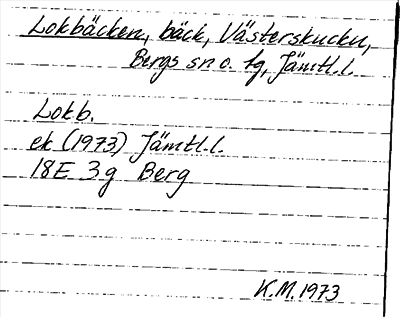 Lokbäcken, bäck, Västerskucku,
Bergs sn o. tg, Jämtl.l.
Lokb.
ek (1973) Jämtl.l.
18E 3g Berg
K.M. 1973